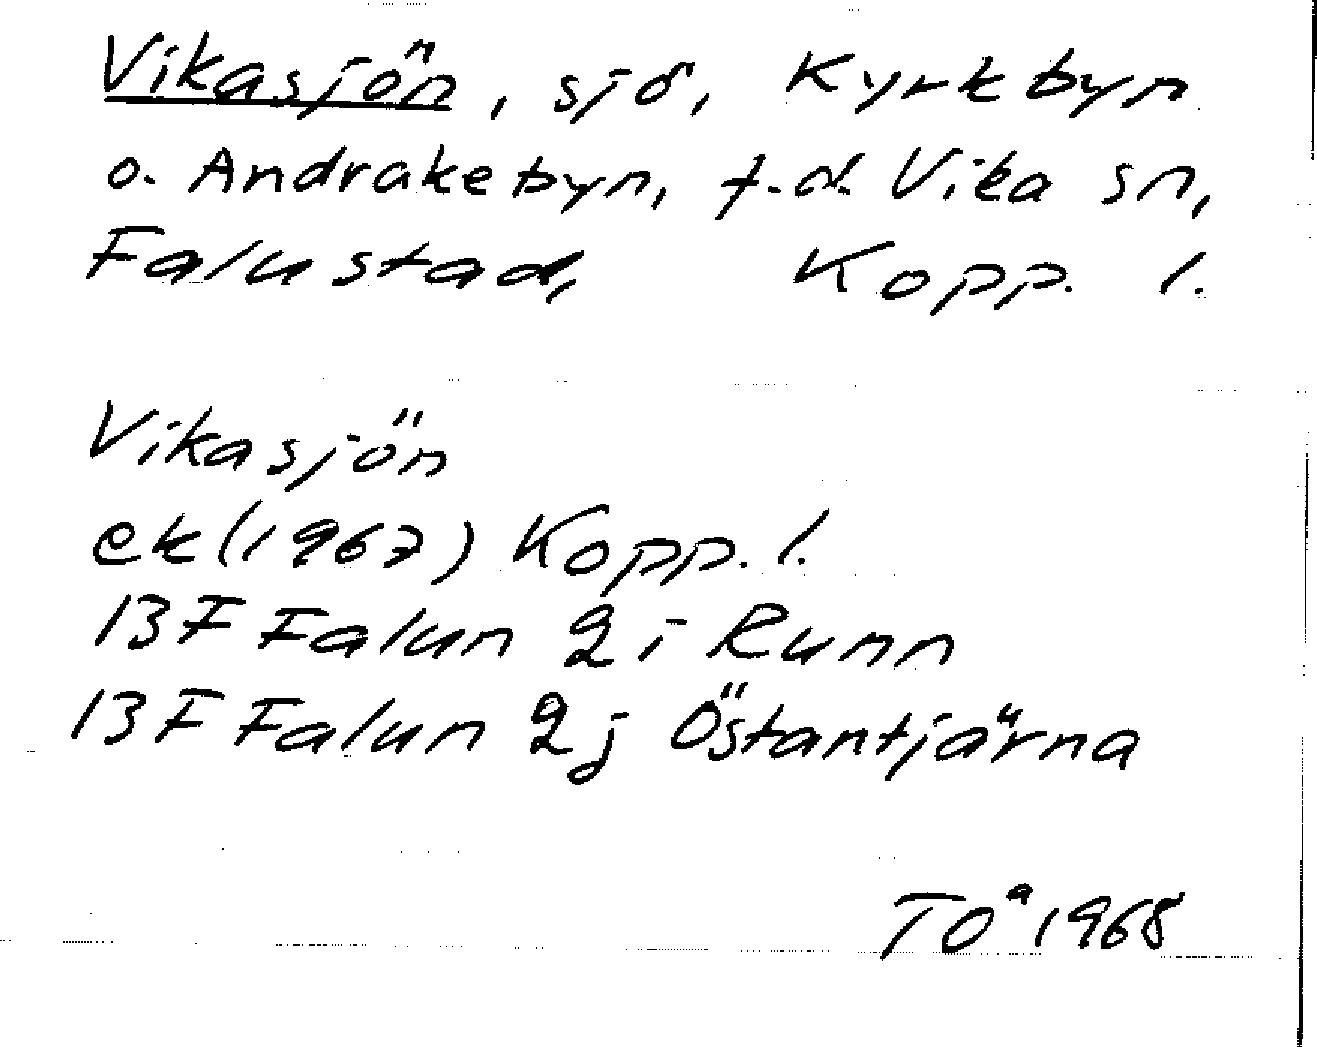 Vikasjön, sjö, Kyrkbyn
o. Andrakebyn, f.d. Vika sn,
Falu stad, Kopp. l.
Vikasjön
ek (1967) Kopp. l.
13F Falun 2i Runn
13F Falun 2j Östantjärna
TOª 1968